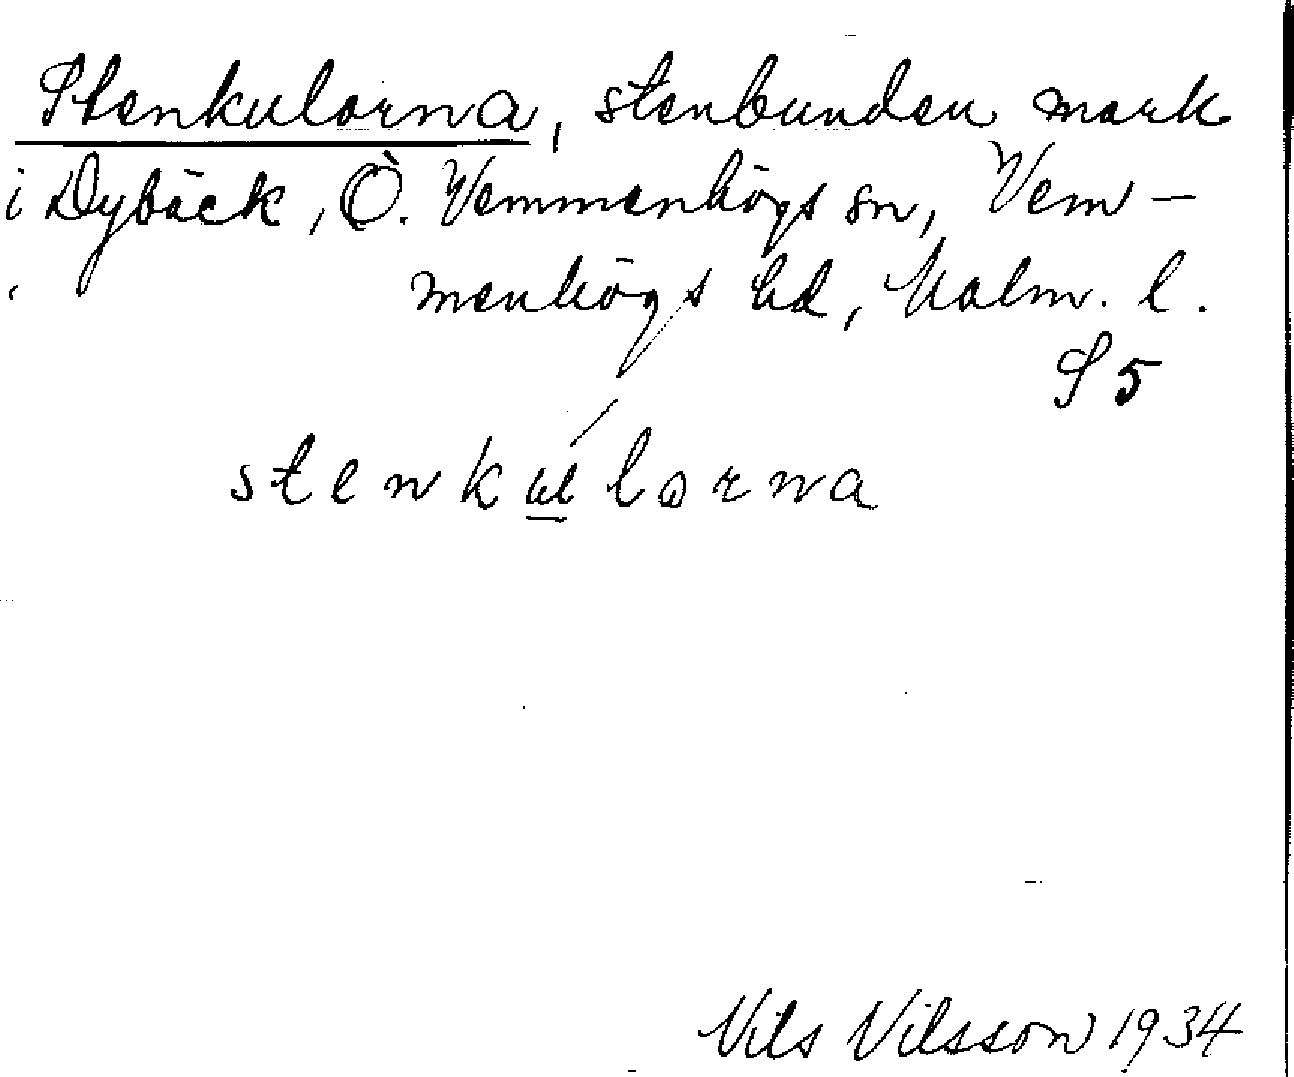 Stenkulorna, stenbunden mark
i Dybäck, Ö. Vemmenhögs sn, Vem-
menhögs hd, Malm. l.
S 5
stenkúlorna
Nils Nilsson 1934